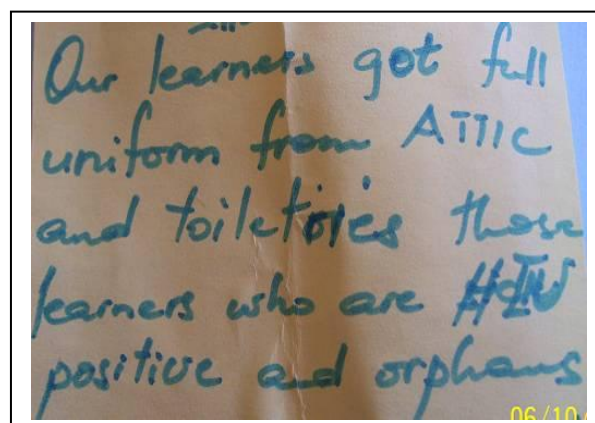 Our learners got full
uniform from ATTIC
and toiletries those
learners who are HIV
positive and orphans
06/10/